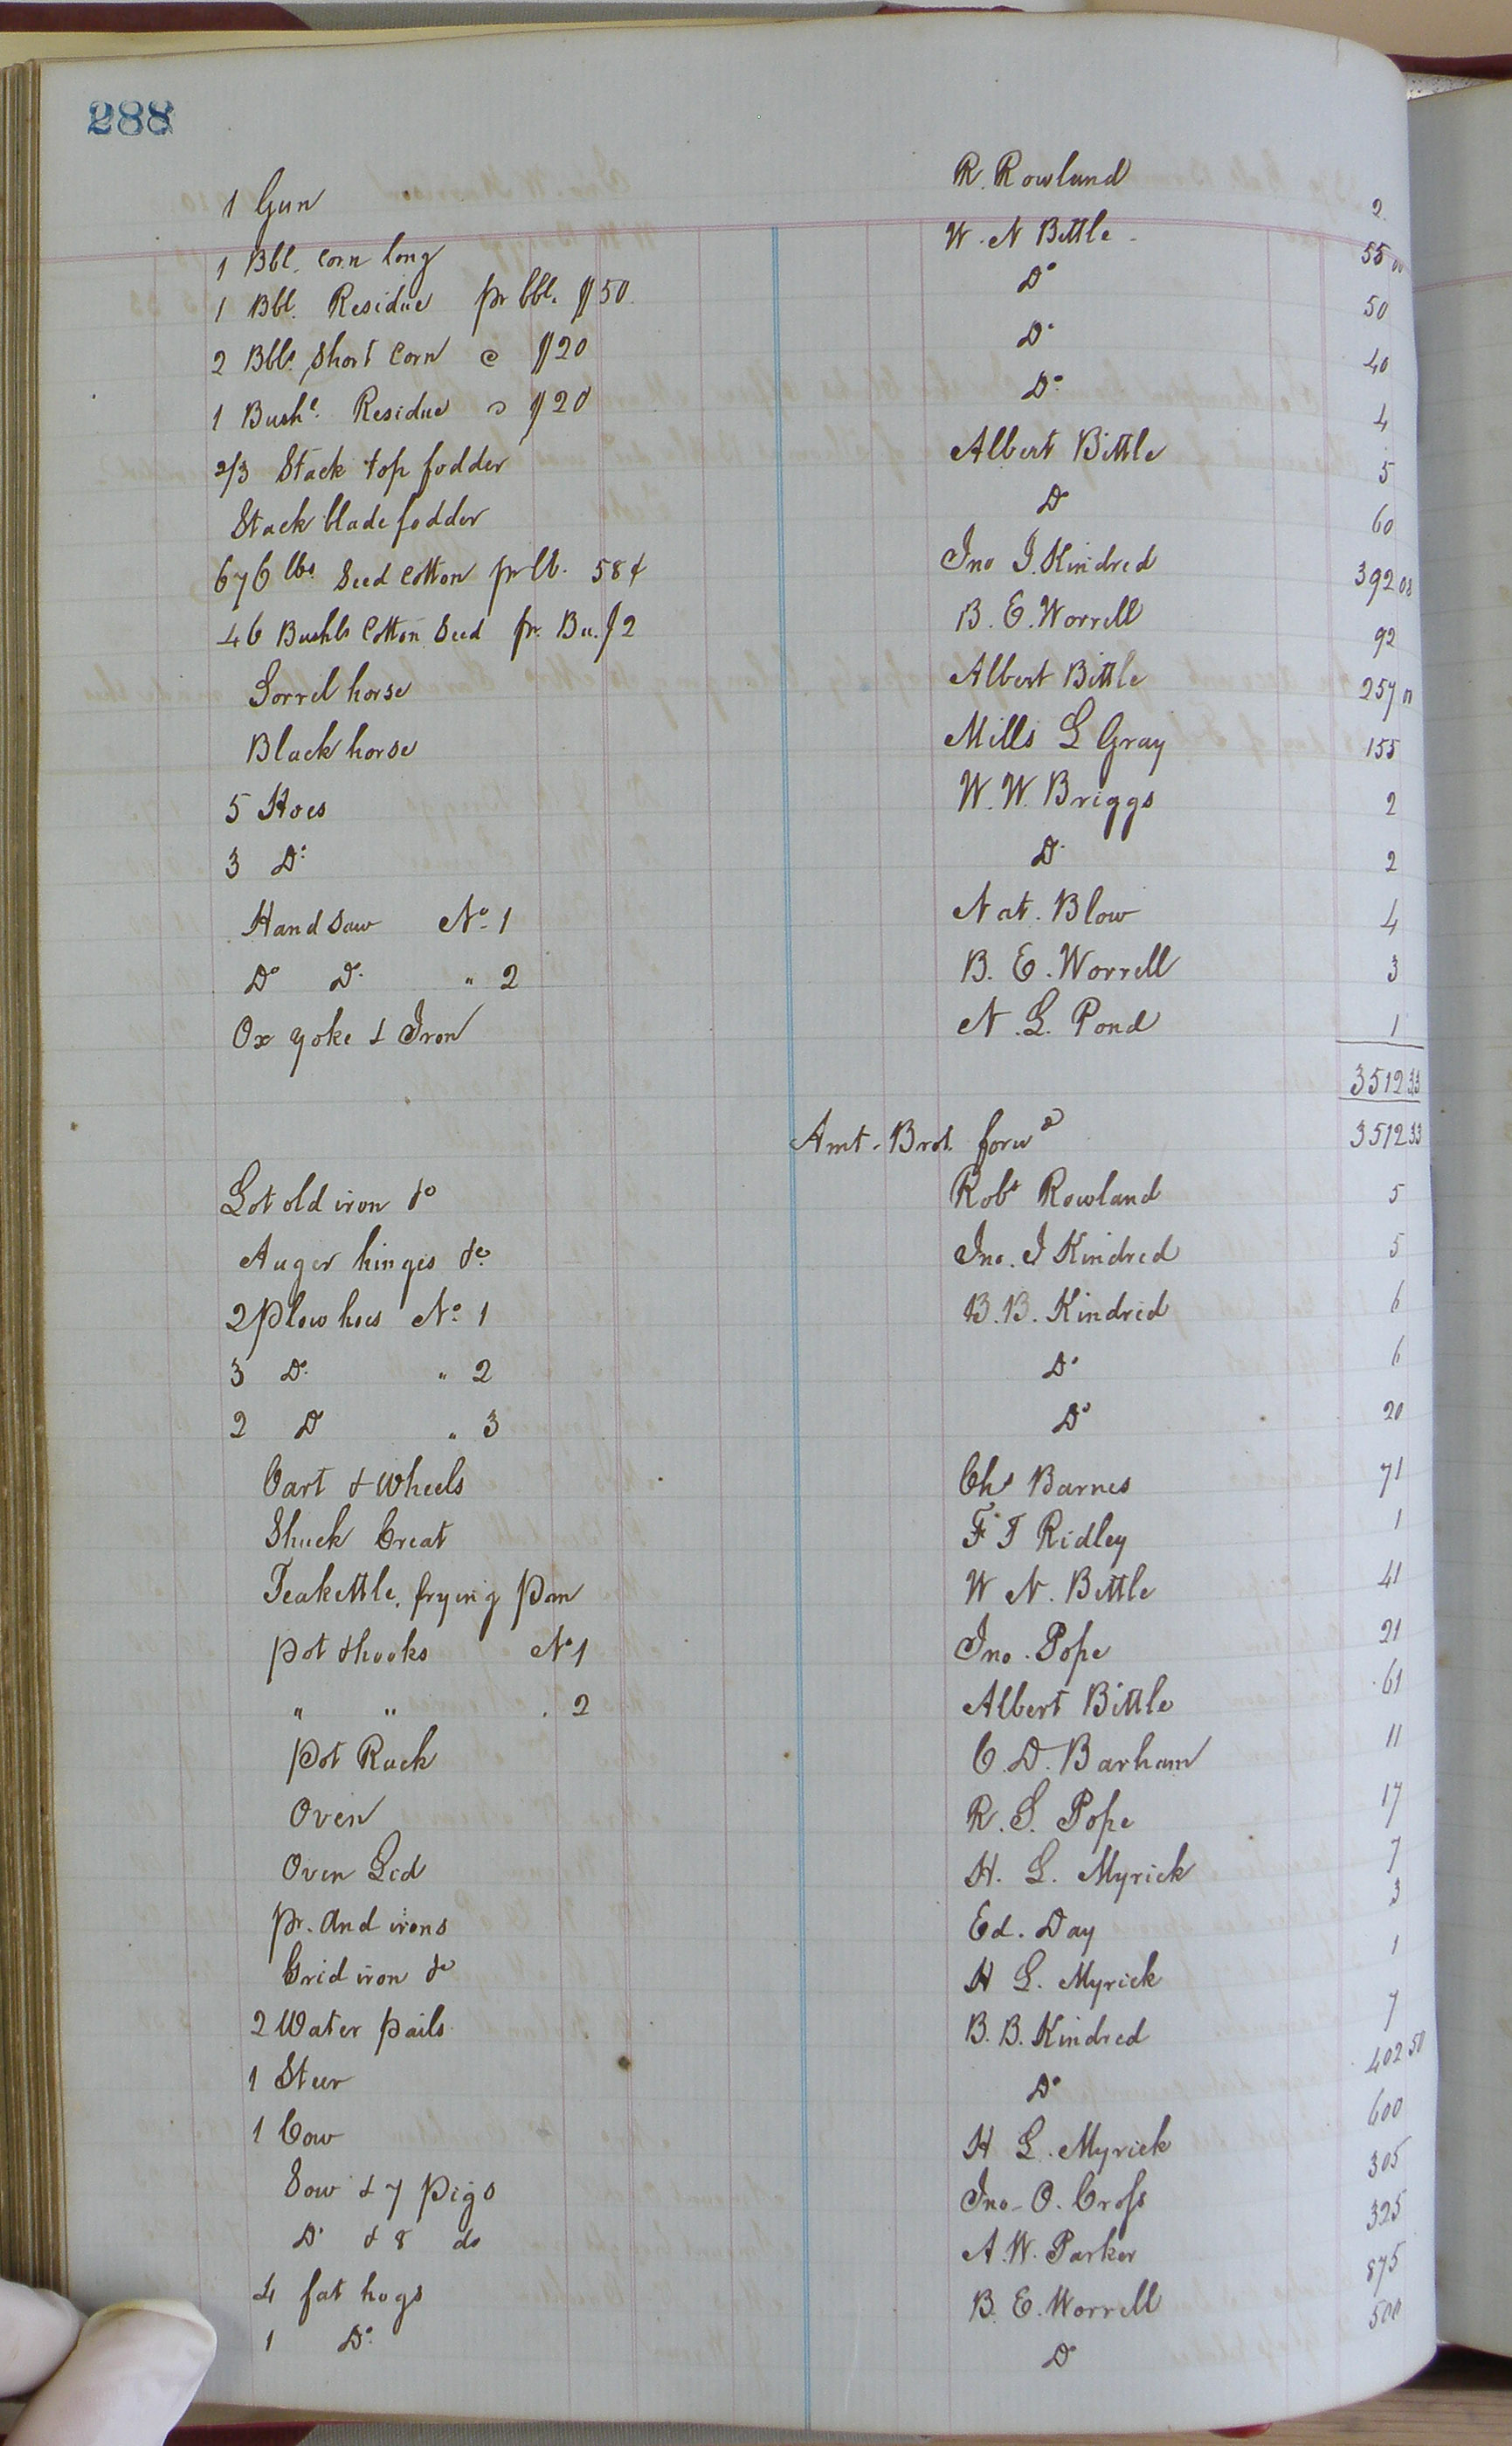 288
1 Gun R. Rowland 2
1 Bbl. Corn long W. N Bittle 55 00
1 Bbl. Residue pr bbl. $50. Do 50
2 Bbls. Short Corn @ $20 Do 40
1 Bushl. Residue @ $20 Do 4
2/3 Stack top fodder Albert Bittle 5
Stack blade fodder Do 60
676 lbs. Seed Cotton pr lb. 58¢ Jno J. Kindred 392 08
46 Bushls Cotton Seed pr. Bu. $2 B. E. Worrell 92
Sorrel horse Albert Bittle 257 00
Black horse Mills L Gray 155
5 Hoes W. W. Briggs 2
3 Do Do 2
Hand saw No. 1 Nat. Blow 4
Do Do " 2 B. E. Worrell 3
Ox yoke & Iron N. L. Pond 1
3512 33
Amt. Brot. forwd 3512 33
Lot old iron &c Robt Rowland 5
Auger hinges &c. Jno. J Kindred 5
2 Plow hoes No. 1 B. B. Kindred 6
3 Do " 2 Do 6
2 D " 3 Do 20
Cart & Wheels Chs Barnes 71
Shuck Creat F T Ridley 1
Teakettle, frying Pan W N. Bittle 41
Pot & hooks No 1 Jno. Pope 21
" " . 2 Albert Bittle 61
Pot Rack C. D. Barham 11
Oven R. S. Pope 17
Oven Lid H. L. Myrick 7
Pr. And irons Ed. Day 3
Grid iron &c H L. Myrick 1
2 Water pails B. B. Kindred 7
1 Steer Do 402 50
1 Cow H L. Myrick 600
Sow & 7 Pigs Jno. O. Cross 305
Do & 8 do A. W. Parker 325
4 fat hogs B. E. Worrell 875
1 Do. Do 500